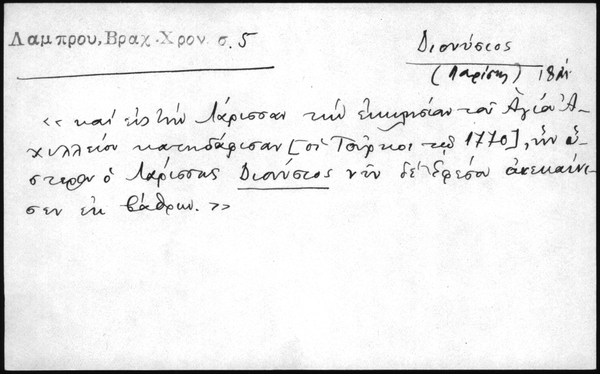 Λαμπρου, Βραχ. Χρον. σ. 5
Διονύσιος
(Λαρίσης) 18ος
« καί εἰς τήν Λάρισσαν τήν ἐκκλησίαν τοῦ Ἁγίου Ἀ-
χιλλείου κατηδάφισαν [οἱ Τοῦρκοι τῷ 1770], ἥν ὕ-
στερον ὁ Λαρίσσης Διονύσιος νῦν δέ Ἐφέσου ἀνεκαίνι-
σεν ἐκ βάθρων. »